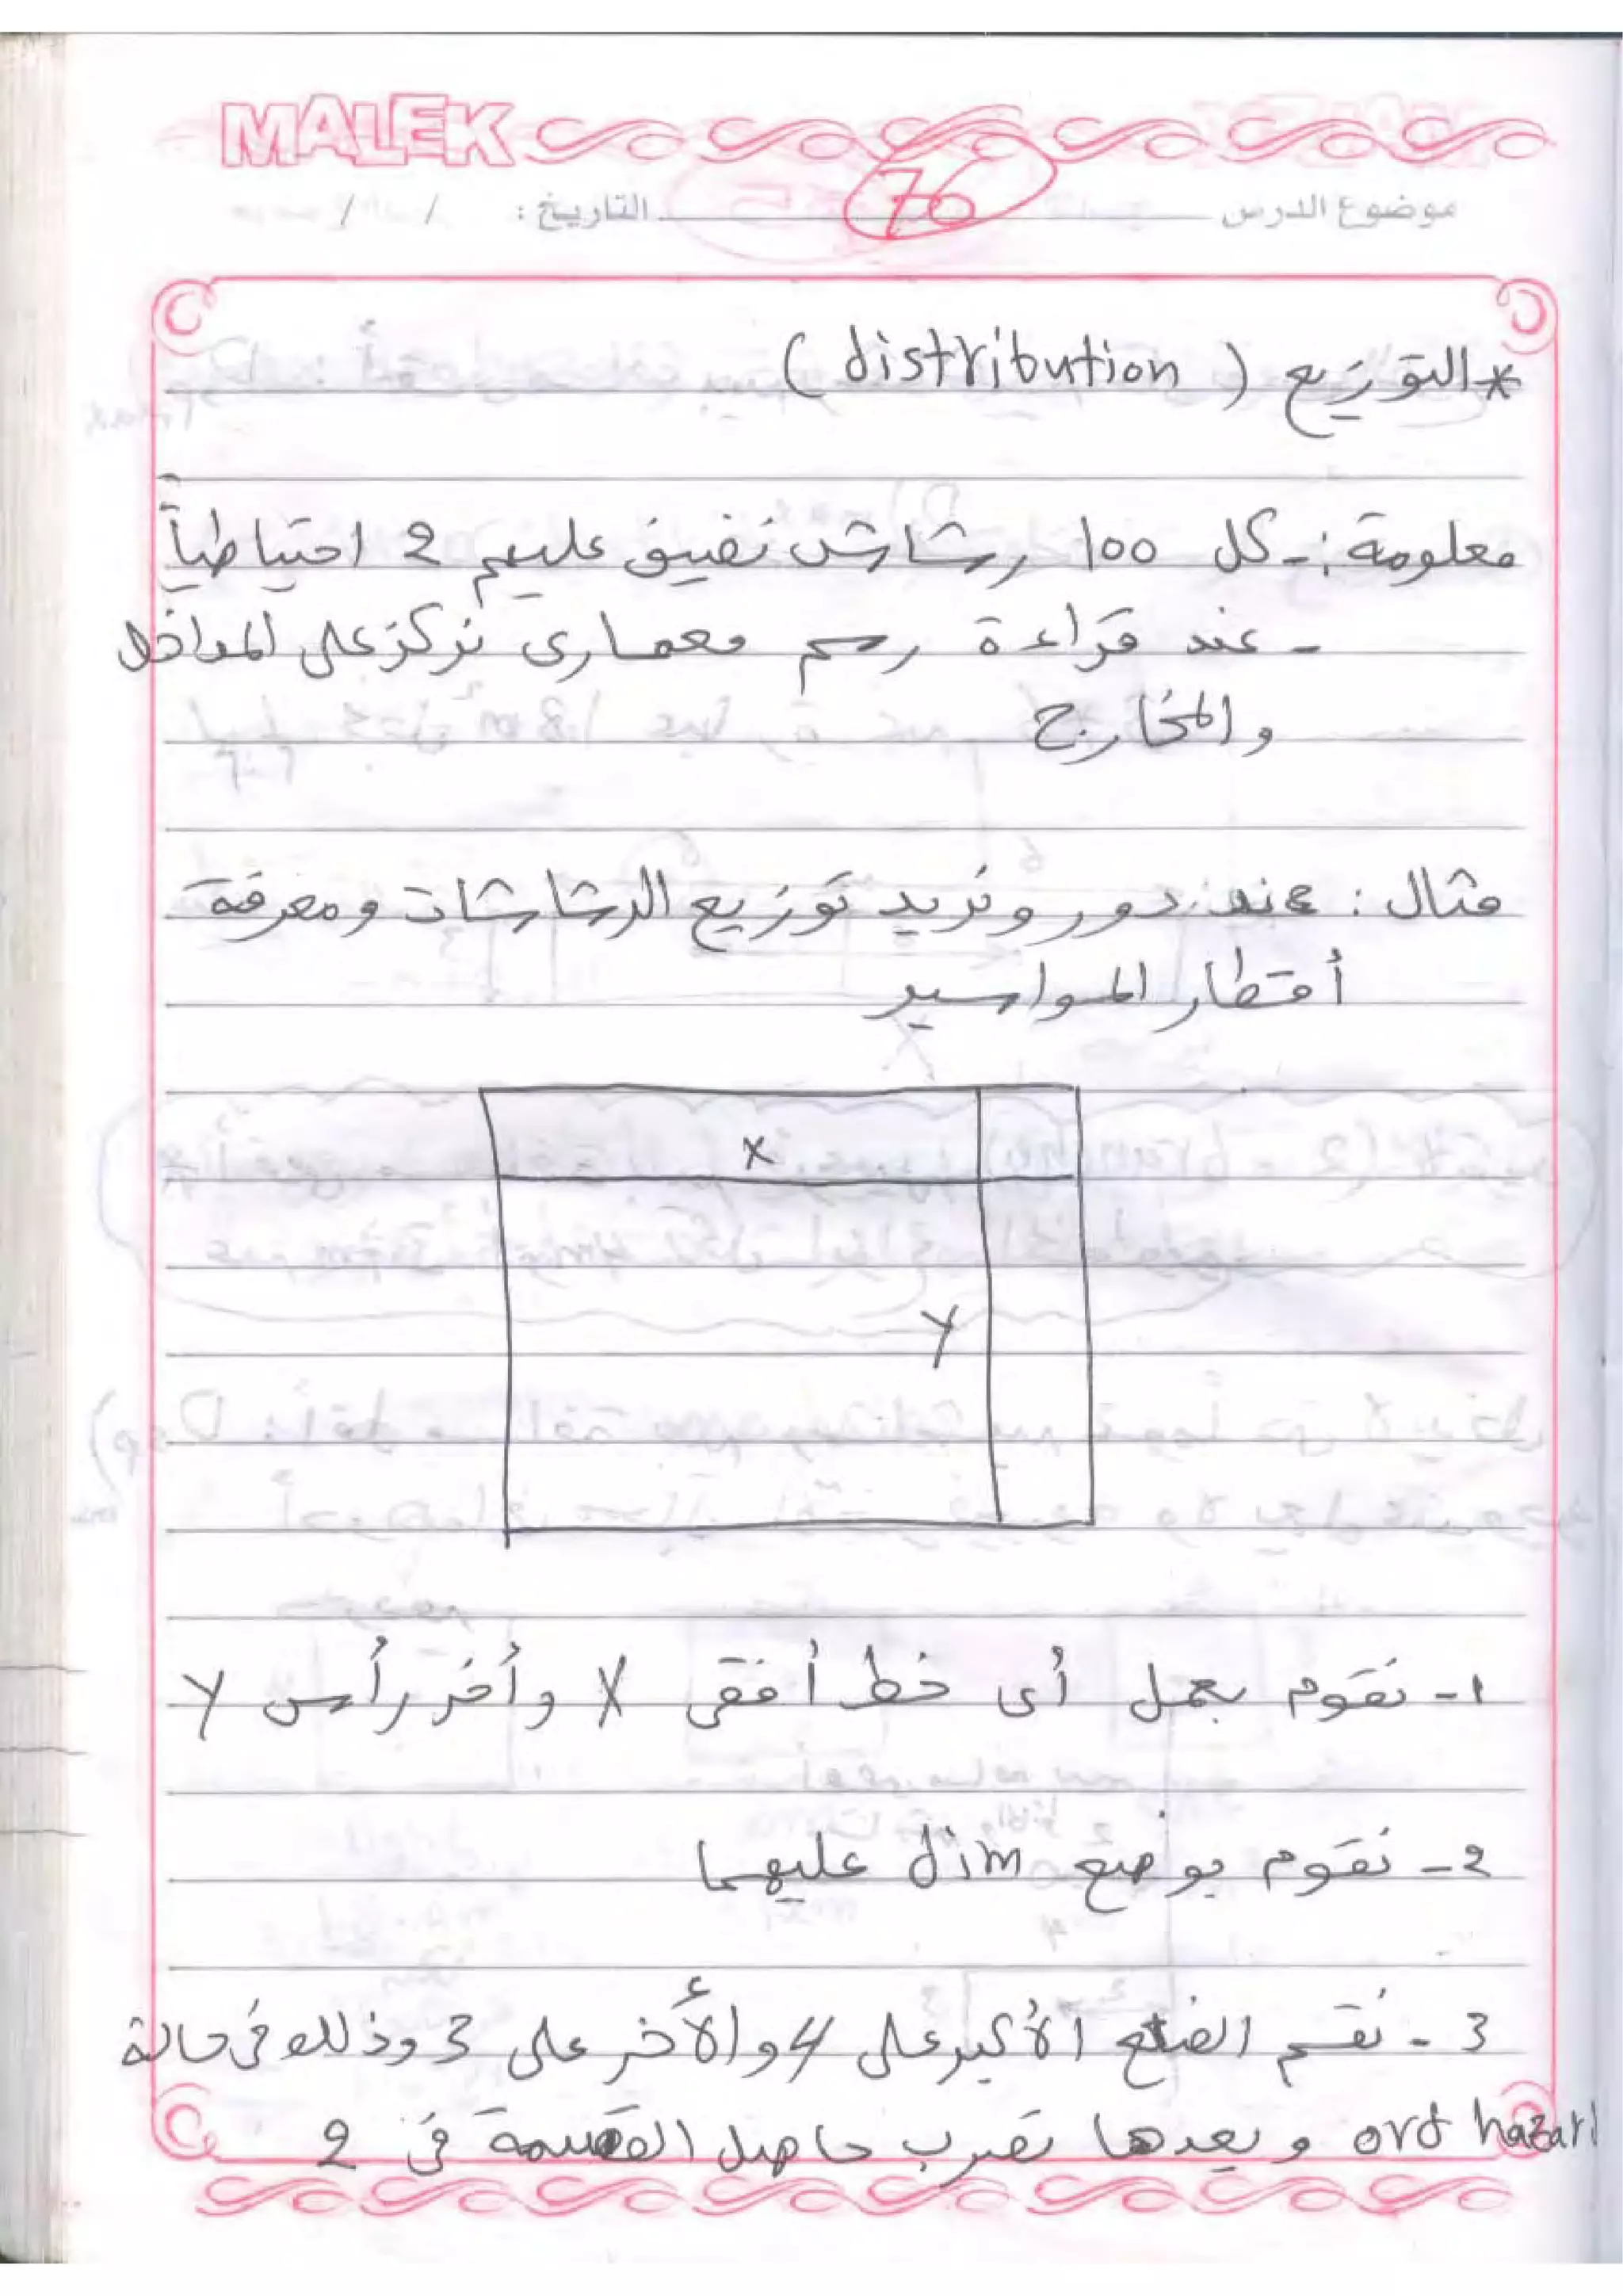 MALEK
76
موضوع الدرس التاريخ : / /
* التوزيع ( distribution )
معلومة :- كل 100 رشاش نضيف عليهم 2 احتياطياً
- عند قراءة رسم معمارى نركز على المداخل
والمخارج
مثال : عند دور ونريد توزيع الرشاشات ومعرفة
أقطار المواسير
X
Y
1- نقوم بعمل أى خط أفقى X وأخر رأس Y
2- نقوم بوضع dim عليهما
3- نقسم الضلع الأكبر على 4 والأخر على 3 وذلك فى حالة
ord hazard وبعدها نضرب حاصل القسمة فى 2